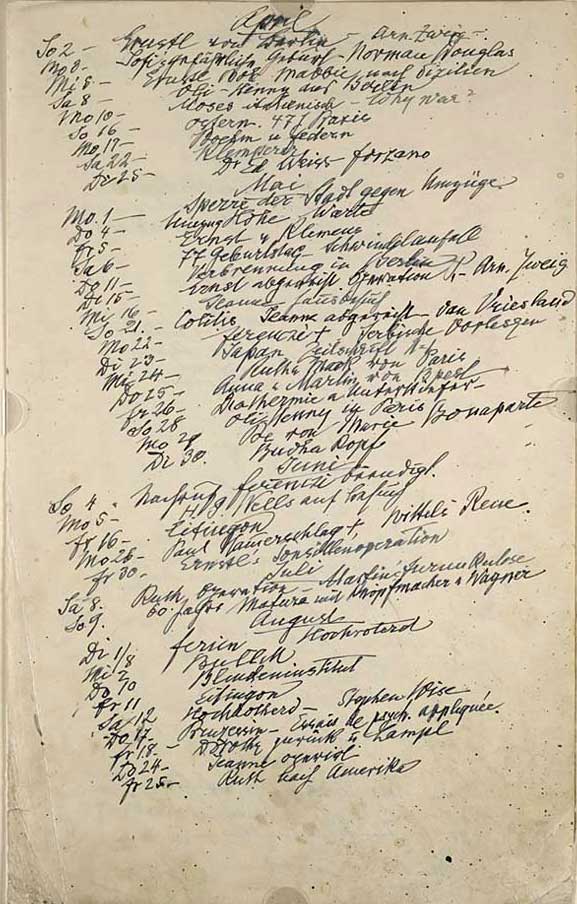 April
So 2 – Ernstl von Berlin – Arn. Zweig –
Mo 3 – Sofi gefährliche Geburt – Norman Douglas
Mi 5 – Ernstl Bob Mabbie nach Sizilien
Sa 8 – Oli – Henny aus Berlin
Mo 10 – Moses italienisch – Why war?
So 16 Ostern. 47 J Praxis
Mo 17 – Boehm u Federn
Sa 22 – Klemperer
Di 25 – Dr Ed. Weiss – Forzano
Mai
Mo. 1 – Sperre der Stadt gegen Umzüge
Do 4 – Umzug Hohe Warte
Fr 5 – Ernst u Klemens
Sa 6 – 77 Geburtstag – Schwindelanfall
Do 11 – Verbrennung in Berlin
Di 15 – Ernst abgereist – Operation – Arn. Zweig
Mi 16 – Jeanne
So 21. – abgereist – Van Vriesland
Mo 22 – Ferenczi † Serbische Vorlesgen
Di 23 – Japan Zeitschrift
Mi 24 – Ruth u Mark von Paris
Do 25 – Anna u Martin von Bpest
Fr 26 – Diathermie u
So 28 Oli Henny in Paris
Mo 29 Be von Marie Bonaparte
Di 30. Budha Kopf
Juni
So 4. Nachruf Ferenczi beendigt.
Mo 5 – H. G. Wells auf Besuch
Fr 16 – Eitingon
Mo 26 – Paul Hamerschlag †, Wittels Revue.
Fr 30 – Ernstl's Tonsillenoperation
Juli
Sa 8. Ruth Operation – Martin Furunkulose
So 9. 60 Jahre Matura mit Knöpfmacher u Wagner
August
Di 1/8 Ferien Hochroterd
Mi 2 Bullitt
Do 10 Blindeninstitut
Fr 11 Eitingon
Sa 12 Hochroterd – Stephen Wise
Do 17. – Essais de psych. appliquée.
Fr. 18. – Dorothy zurück u Lampl
Do 24 – Jeanne
Fr 25 – Ruth nach Amerika